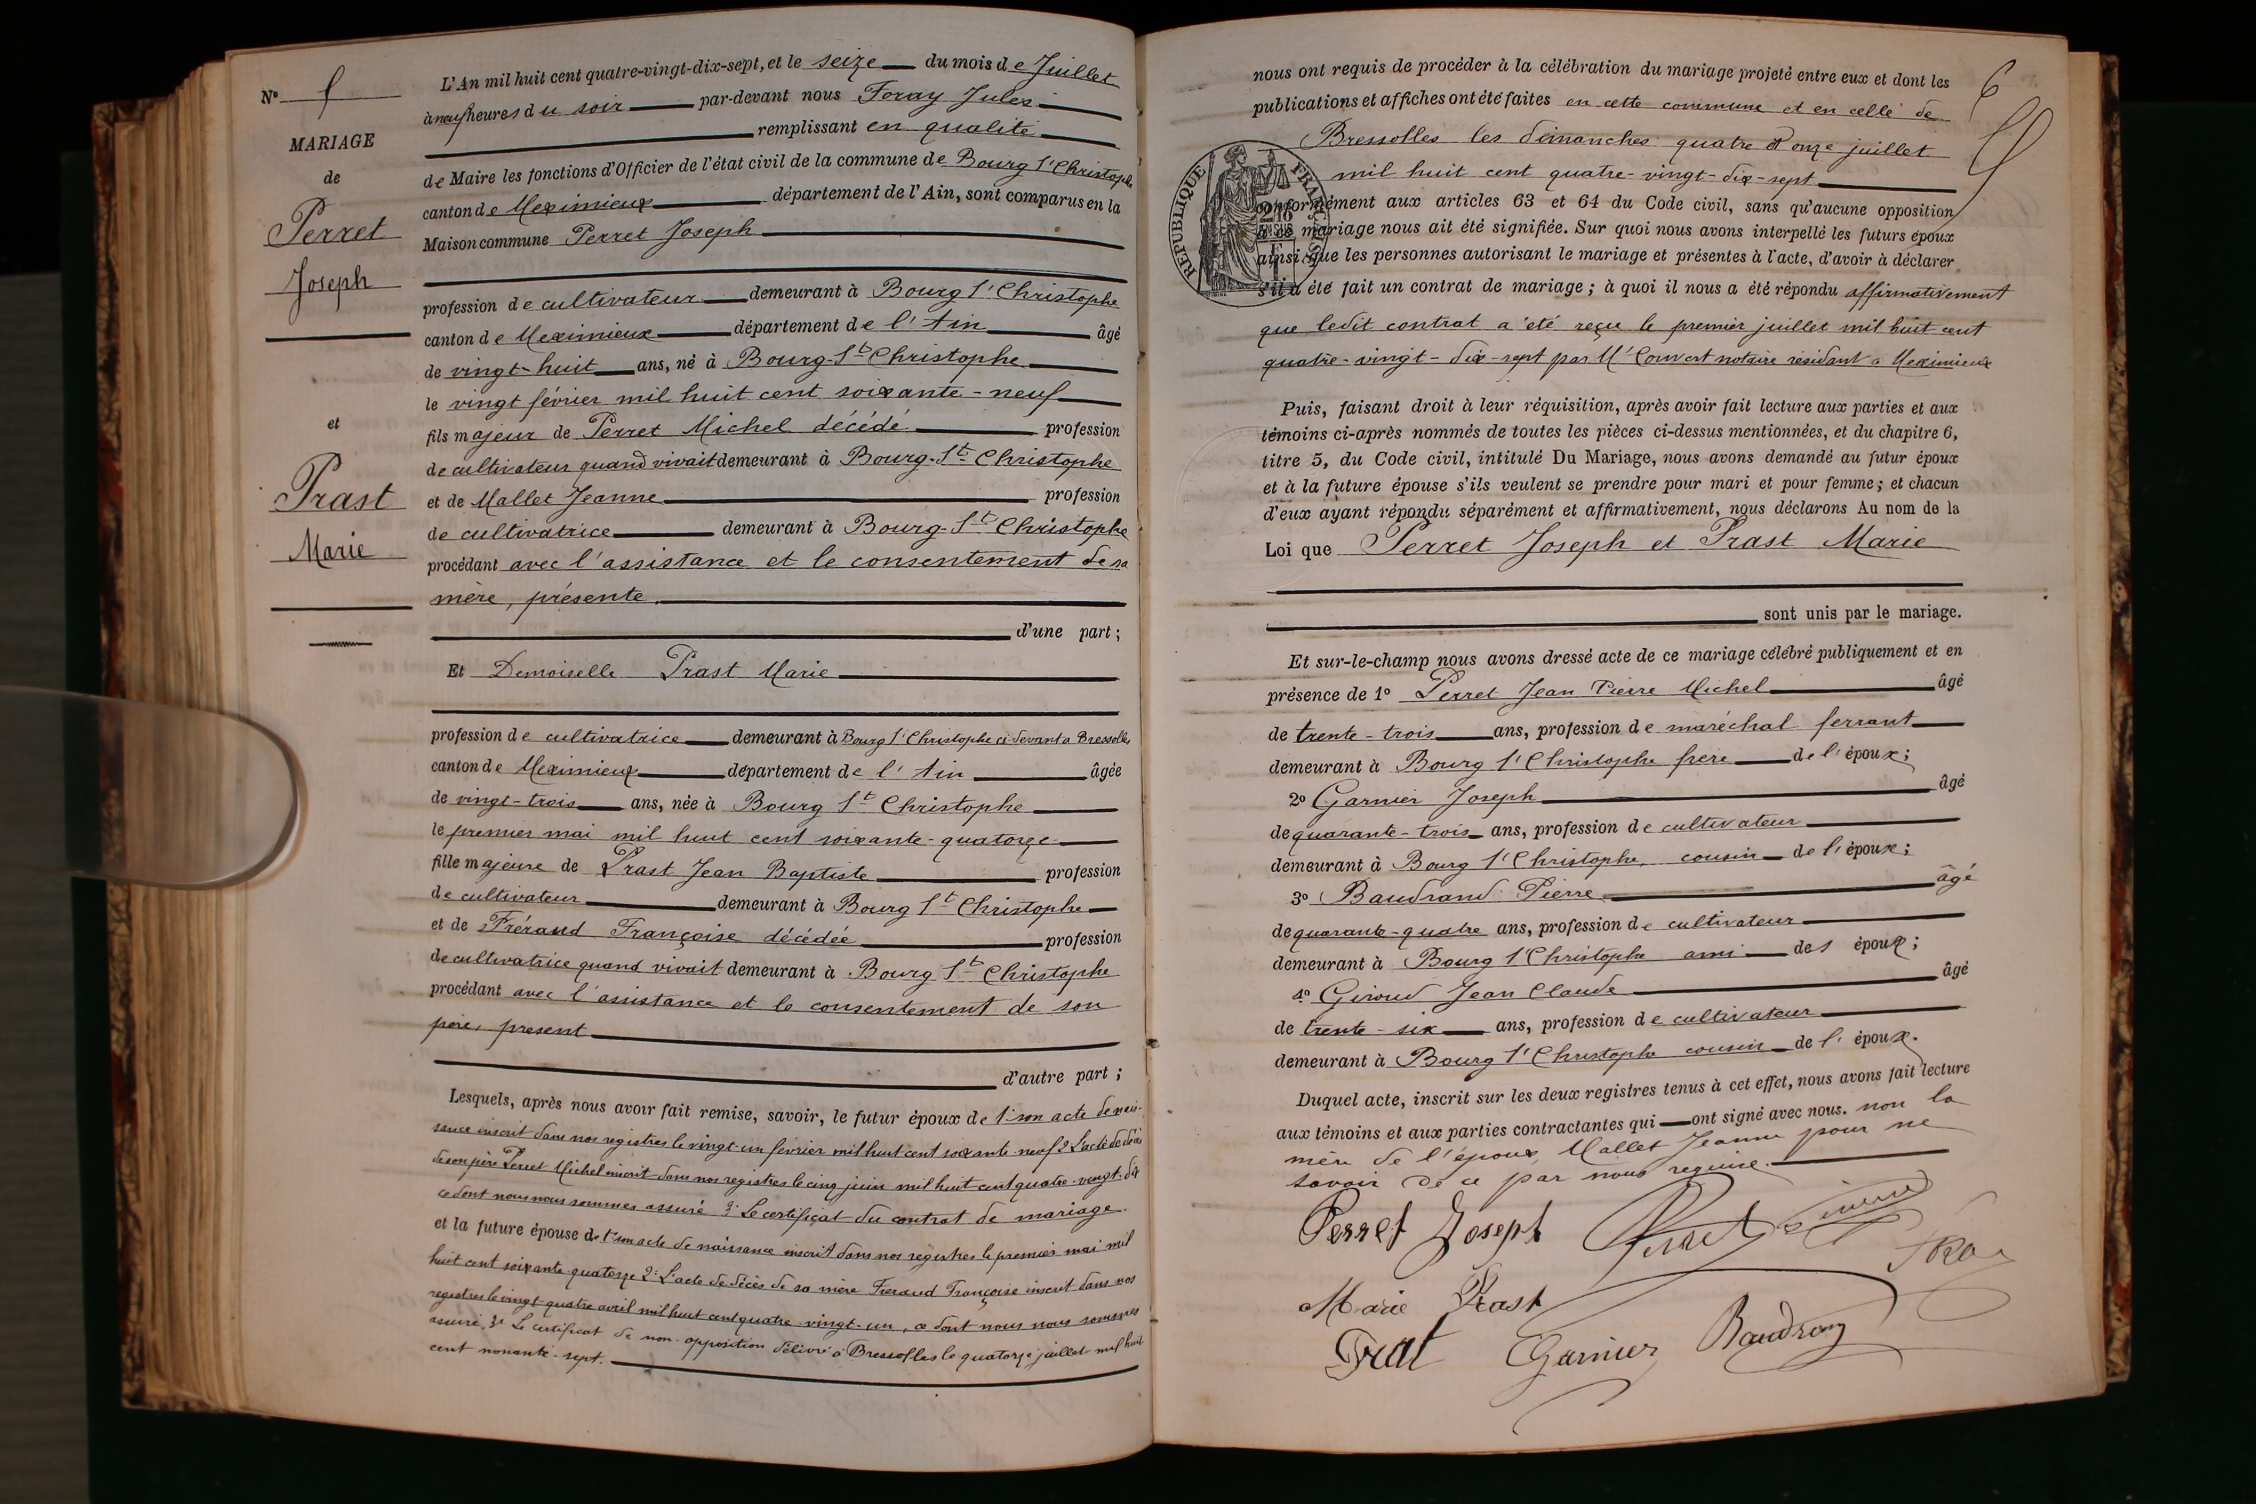 N°
MARIAGE
de
Perret
Joseph
et
Prast
Marie
L'An mil huit cent quatre-vingt-dix-sept, et le seize du mois de Juillet
à neuf heures du soir par-devant nous Foray Jules
remplissant en qualité
de Maire les fonctions d'Officier de l'état civil de la commune de Bourg St Christophe
canton de Meximieux département de l'Ain, sont comparus en la
Maison commune Perret Joseph
profession de cultivateur demeurant à Bourg St Christophe
canton de Meximieux département de l'Ain âgé
de vingt-huit ans, né à Bourg-St Christophe
le vingt février mil huit cent soixante-neuf
fils majeur de Perret Michel décédé profession
de cultivateur quand vivait demeurant à Bourg-St Christophe
et de Mallet Jeanne profession
de cultivatrice demeurant à Bourg-St Christophe
procédant avec l'assistance et le consentement de sa
mère, présente
d'une part ;
Et Demoiselle Prast Marie
profession de cultivatrice demeurant à Bourg St Christophe ci-devant à Bressolles
canton de Meximieux département de l'Ain âgée
de vingt-trois ans, née à Bourg St Christophe
le premier mai mil huit cent soixante-quatorze
fille majeure de Prast Jean Baptiste profession
de cultivateur demeurant à Bourg St Christophe
et de Fréraud Françoise décédée profession
de cultivatrice quand vivait demeurant à Bourg St Christophe
procédant avec l'assistance et le consentement de son
père, présent
d'autre part ;
Lesquels, après nous avoir fait remise, savoir, le futur époux de 1° son acte de nais-
sance inscrit dans nos registres le vingt-un février mil huit cent soixante-neuf 2° L'acte de décès
de son père Perret Michel inscrit dans nos registres le cinq juin mil huit cent quatre-vingt-dix
ce dont nous nous sommes assuré 3° Le certificat du contrat de mariage.
et la future épouse de 1° son acte de naissance inscrit dans nos registres le premier mai mil
huit cent soixante quatorze 2° L'acte de décès de sa mère Freraud Françoise inscrit dans nos
registres le vingt quatre avril mil huit cent quatre-vingt-un, ce dont nous nous sommes
assuré. 3° Le certificat de non-opposition délivré à Bressolles le quatorze juillet mil huit
cent nonante-sept.
6
nous ont requis de procéder à la célébration du mariage projeté entre eux et dont les
publications et affiches ont été faites en cette commune et en celle de
Bressolles les dimanches quatre et onze juillet
mil huit cent quatre-vingt-dix-sept
RÉPUBLIQUE FRANÇAISE
conformément aux articles 63 et 64 du Code civil, sans qu'aucune opposition
à ce mariage nous ait été signifiée. Sur quoi nous avons interpellé les futurs époux
ainsi que les personnes autorisant le mariage et présentes à l'acte, d'avoir à déclarer
s'il a été fait un contrat de mariage ; à quoi il nous a été répondu affirmativement
que ledit contrat a été reçu le premier juillet mil huit cent
quatre-vingt-dix-sept par Me Convert notaire résidant à Meximieux
Puis, faisant droit à leur réquisition, après avoir fait lecture aux parties et aux
témoins ci-après nommés de toutes les pièces ci-dessus mentionnées, et du chapitre 6,
titre 5, du Code civil, intitulé Du Mariage, nous avons demandé au futur époux
et à la future épouse s'ils veulent se prendre pour mari et pour femme ; et chacun
d'eux ayant répondu séparément et affirmativement, nous déclarons Au nom de la
Loi que Perret Joseph et Prast Marie
sont unis par le mariage.
Et sur-le-champ nous avons dressé acte de ce mariage célébré publiquement et en
présence de 1° Perret Jean Pierre Michel âgé
de trente-trois ans, profession de maréchal ferrant
demeurant à Bourg St Christophe frère de l'époux ;
2° Garnier Joseph âgé
de quarante-trois ans, profession de cultivateur
demeurant à Bourg St Christophe, cousin de l'époux ;
3° Baudrand Pierre âgé
de quarante-quatre ans, profession de cultivateur
demeurant à Bourg St Christophe ami des époux ;
4° Giroud Jean Claude âgé
de trente-six ans, profession de cultivateur
demeurant à Bourg St Christophe cousin de l'époux.
Duquel acte, inscrit sur les deux registres tenus à cet effet, nous avons fait lecture
aux témoins et aux parties contractantes qui ont signé avec nous. non la
mère de l'époux, Mallet Jeanne pour ne
savoir de ce par nous requise.
Perret Joseph Perret
Marie Prast
Prat Garnier Baudrand